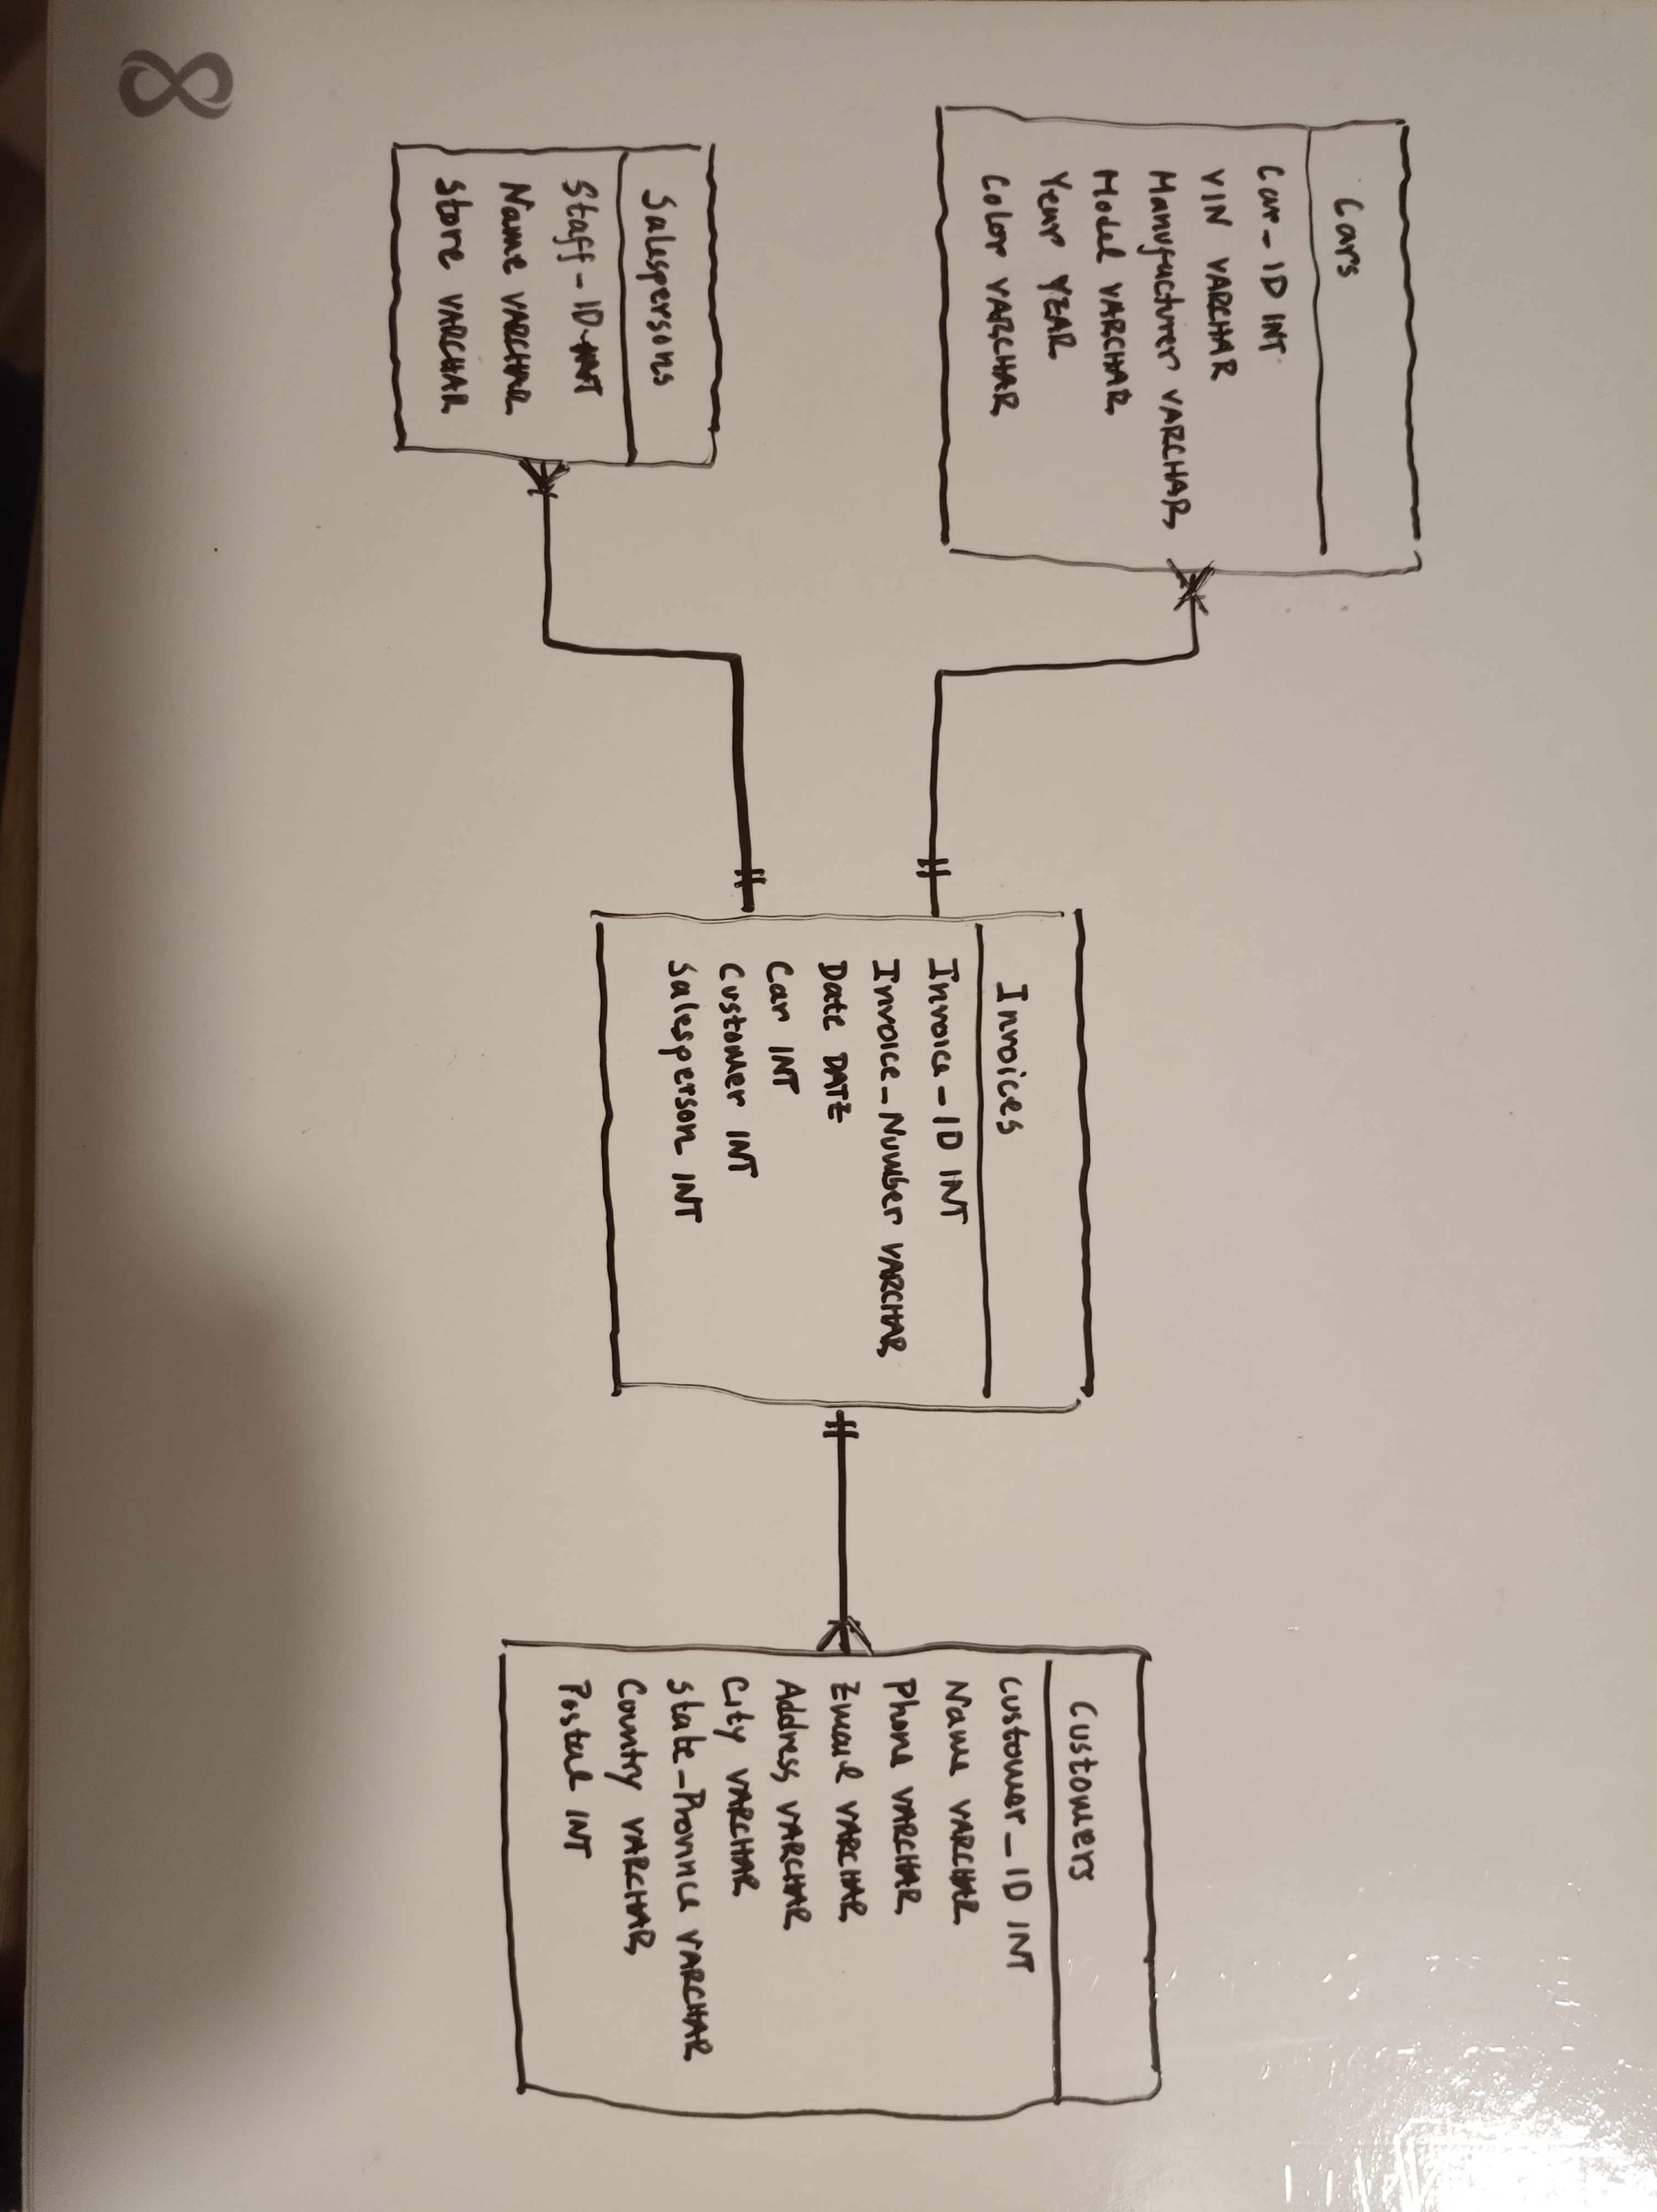 Cars
Car_ID INT
VIN VARCHAR
Manufacturer VARCHAR
Model VARCHAR
Year YEAR
Color VARCHAR
Salespersons
Staff_ID INT
Name VARCHAR
Store VARCHAR
Invoices
Invoice_ID INT
Invoice_Number VARCHAR
Date DATE
Car INT
Customer INT
Salesperson INT
Customers
Customer_ID INT
Name VARCHAR
Phone VARCHAR
Email VARCHAR
Address VARCHAR
City VARCHAR
State_Province VARCHAR
Country VARCHAR
Postal INT